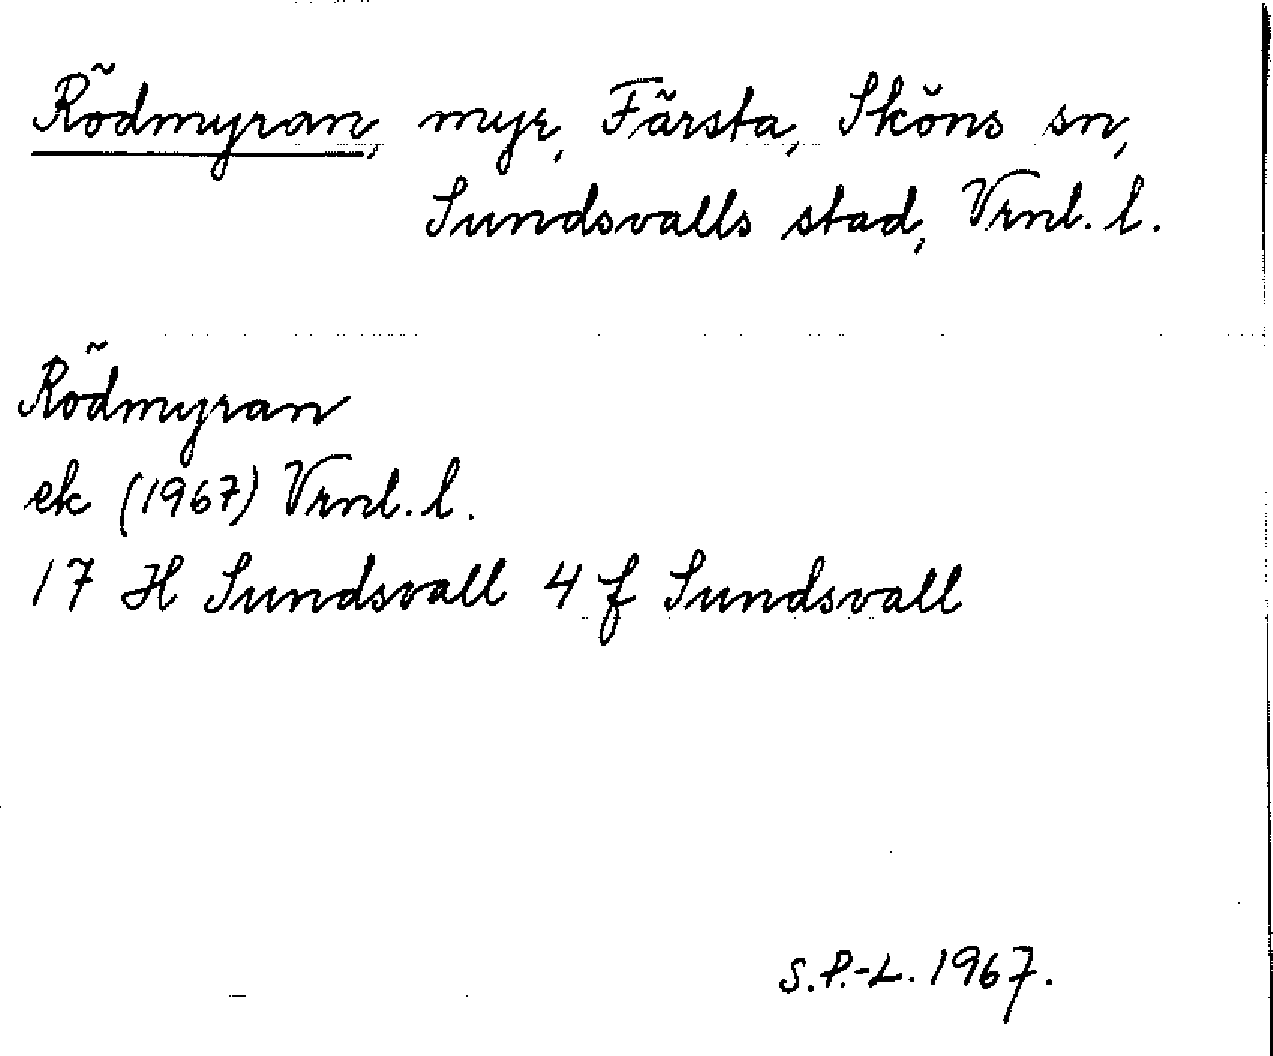 Rödmyran, myr, Färsta, Sköns sn,
Sundsvalls stad, Vrnl. l.
Rödmyran
ek (1967) Vrnl. l.
17 H Sundsvall 4 f Sundsvall
S.P.-L. 1967.